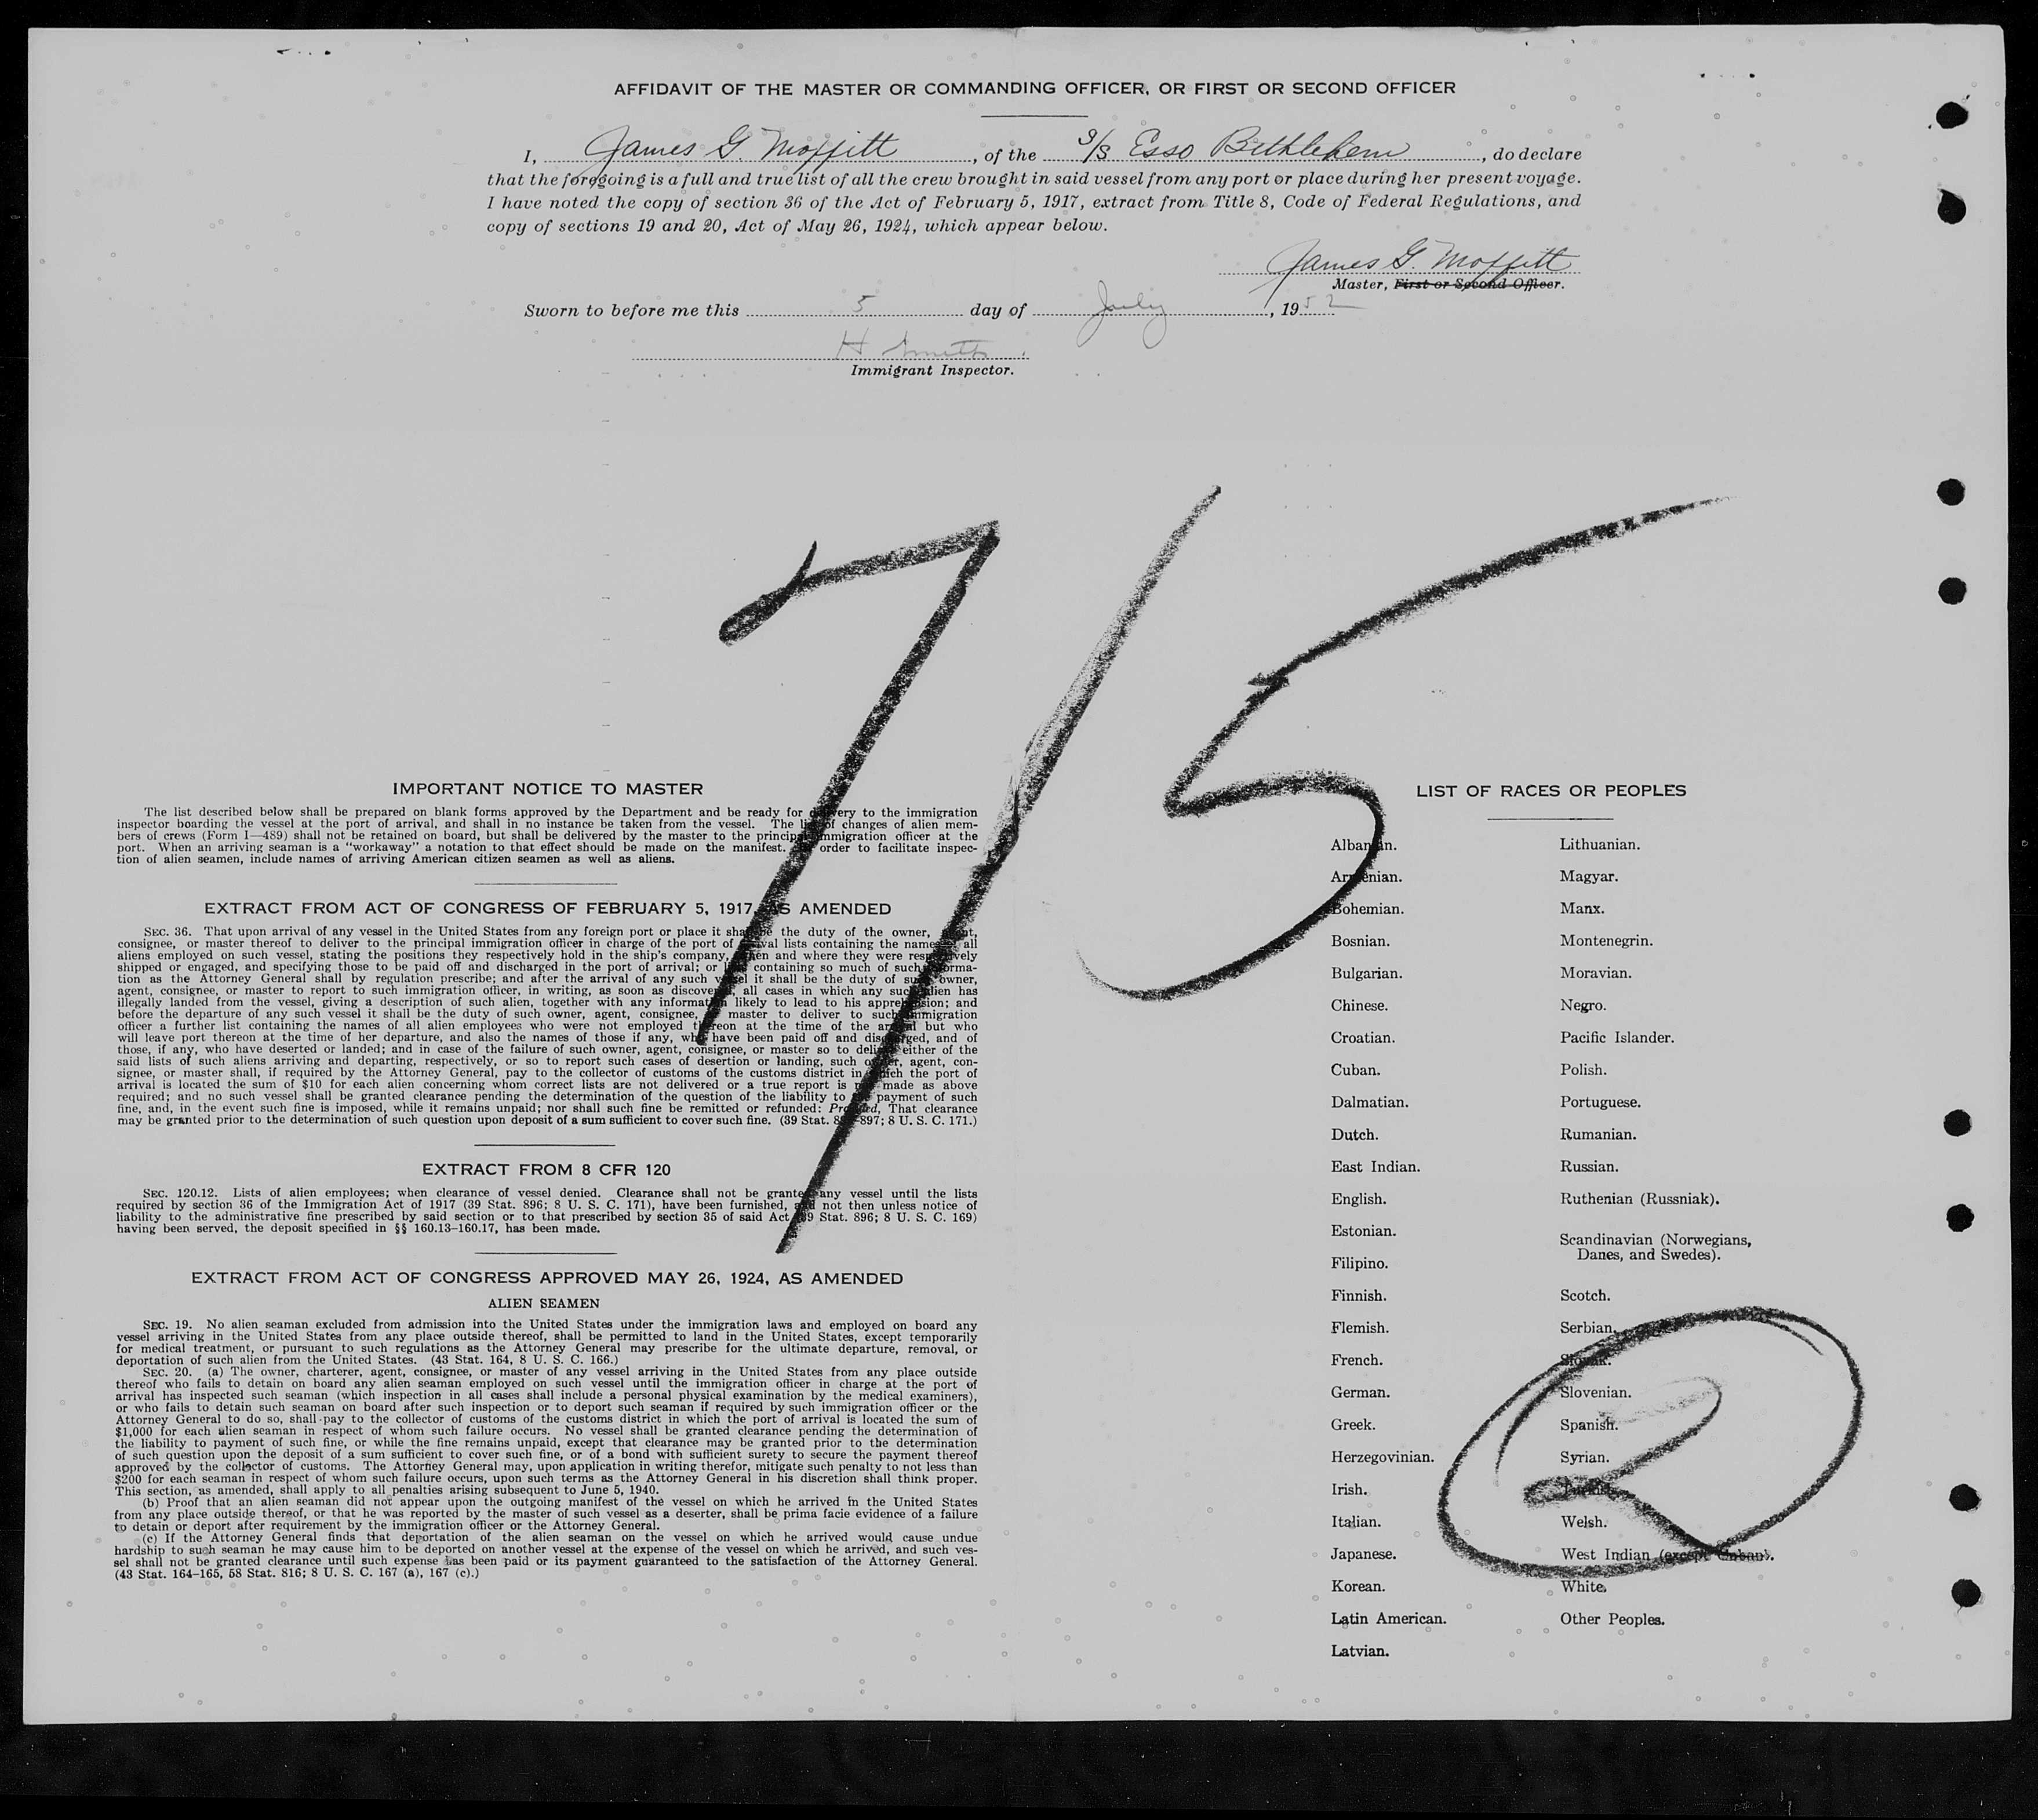 AFFIDAVIT OF THE MASTER OR COMMANDING OFFICER, OR FIRST OR SECOND OFFICER
I, James G. Moffitt, of the S/S Esso Bethlehem, do declare
that the foregoing is a full and true list of all the crew brought in said vessel from any port or place during her present voyage.
I have noted the copy of section 36 of the Act of February 5, 1917, extract from Title 8, Code of Federal Regulations, and
copy of sections 19 and 20, Act of May 26, 1924, which appear below.
James G. Moffitt
Master, First or Second Officer.
Sworn to before me this 5 day of July, 1952
H Smith
Immigrant Inspector.
7/5
IMPORTANT NOTICE TO MASTER
The list described below shall be prepared on blank forms approved by the Department and be ready for delivery to the immigration
inspector boarding the vessel at the port of arrival, and shall in no instance be taken from the vessel. The list of changes of alien mem-
bers of crews (Form I—489) shall not be retained on board, but shall be delivered by the master to the principal immigration officer at the
port. When an arriving seaman is a "workaway" a notation to that effect should be made on the manifest. In order to facilitate inspec-
tion of alien seamen, include names of arriving American citizen seamen as well as aliens.
EXTRACT FROM ACT OF CONGRESS OF FEBRUARY 5, 1917, AS AMENDED
SEC. 36. That upon arrival of any vessel in the United States from any foreign port or place it shall be the duty of the owner, agent,
consignee, or master thereof to deliver to the principal immigration officer in charge of the port of arrival lists containing the names of all
aliens employed on such vessel, stating the positions they respectively hold in the ship's company, when and where they were respectively
shipped or engaged, and specifying those to be paid off and discharged in the port of arrival; or lists containing so much of such informa-
tion as the Attorney General shall by regulation prescribe; and after the arrival of any such vessel it shall be the duty of such owner,
agent, consignee, or master to report to such immigration officer, in writing, as soon as discovered, all cases in which any such alien has
illegally landed from the vessel, giving a description of such alien, together with any information likely to lead to his apprehension; and
before the departure of any such vessel it shall be the duty of such owner, agent, consignee, or master to deliver to such immigration
officer a further list containing the names of all alien employees who were not employed thereon at the time of the arrival but who
will leave port thereon at the time of her departure, and also the names of those if any, who have been paid off and discharged, and of
those, if any, who have deserted or landed; and in case of the failure of such owner, agent, consignee, or master so to deliver either of the
said lists of such aliens arriving and departing, respectively, or so to report such cases of desertion or landing, such owner, agent, con-
signee, or master shall, if required by the Attorney General, pay to the collector of customs of the customs district in which the port of
arrival is located the sum of $10 for each alien concerning whom correct lists are not delivered or a true report is not made as above
required; and no such vessel shall be granted clearance pending the determination of the question of the liability to the payment of such
fine, and, in the event such fine is imposed, while it remains unpaid; nor shall such fine be remitted or refunded: Provided, That clearance
may be granted prior to the determination of such question upon deposit of a sum sufficient to cover such fine. (39 Stat. 896-897; 8 U. S. C. 171.)
EXTRACT FROM 8 CFR 120
SEC. 120.12. Lists of alien employees; when clearance of vessel denied. Clearance shall not be granted any vessel until the lists
required by section 36 of the Immigration Act of 1917 (39 Stat. 896; 8 U. S. C. 171), have been furnished, and not then unless notice of
liability to the administrative fine prescribed by said section or to that prescribed by section 35 of said Act (39 Stat. 896; 8 U. S. C. 169)
having been served, the deposit specified in §§ 160.13–160.17, has been made.
EXTRACT FROM ACT OF CONGRESS APPROVED MAY 26, 1924, AS AMENDED
ALIEN SEAMEN
SEC. 19. No alien seaman excluded from admission into the United States under the immigration laws and employed on board any
vessel arriving in the United States from any place outside thereof, shall be permitted to land in the United States, except temporarily
for medical treatment, or pursuant to such regulations as the Attorney General may prescribe for the ultimate departure, removal, or
deportation of such alien from the United States. (43 Stat. 164, 8 U. S. C. 166.)
SEC. 20. (a) The owner, charterer, agent, consignee, or master of any vessel arriving in the United States from any place outside
thereof who fails to detain on board any alien seaman employed on such vessel until the immigration officer in charge at the port of
arrival has inspected such seaman (which inspection in all cases shall include a personal physical examination by the medical examiners),
or who fails to detain such seaman on board after such inspection or to deport such seaman if required by such immigration officer or the
Attorney General to do so, shall pay to the collector of customs of the customs district in which the port of arrival is located the sum of
$1,000 for each alien seaman in respect of whom such failure occurs. No vessel shall be granted clearance pending the determination of
the liability to payment of such fine, or while the fine remains unpaid, except that clearance may be granted prior to the determination
of such question upon the deposit of a sum sufficient to cover such fine, or of a bond with sufficient surety to secure the payment thereof
approved by the collector of customs. The Attorney General may, upon application in writing therefor, mitigate such penalty to not less than
$200 for each seaman in respect of whom such failure occurs, upon such terms as the Attorney General in his discretion shall think proper.
This section, as amended, shall apply to all penalties arising subsequent to June 5, 1940.
(b) Proof that an alien seaman did not appear upon the outgoing manifest of the vessel on which he arrived in the United States
from any place outside thereof, or that he was reported by the master of such vessel as a deserter, shall be prima facie evidence of a failure
to detain or deport after requirement by the immigration officer or the Attorney General.
(c) If the Attorney General finds that deportation of the alien seaman on the vessel on which he arrived would cause undue
hardship to such seaman he may cause him to be deported on another vessel at the expense of the vessel on which he arrived, and such ves-
sel shall not be granted clearance until such expense has been paid or its payment guaranteed to the satisfaction of the Attorney General.
(43 Stat. 164–165, 58 Stat. 816; 8 U. S. C. 167 (a), 167 (c).)
LIST OF RACES OR PEOPLES
Albanian.
Armenian.
Bohemian.
Bosnian.
Bulgarian.
Chinese.
Croatian.
Cuban.
Dalmatian.
Dutch.
East Indian.
English.
Estonian.
Filipino.
Finnish.
Flemish.
French.
German.
Greek.
Herzegovinian.
Irish.
Italian.
Japanese.
Korean.
Latin American.
Latvian.
Lithuanian.
Magyar.
Manx.
Montenegrin.
Moravian.
Negro.
Pacific Islander.
Polish.
Portuguese.
Rumanian.
Russian.
Ruthenian (Russniak).
Scandinavian (Norwegians,
Danes, and Swedes).
Scotch.
Serbian.
Slovak.
Slovenian.
Spanish.
Syrian.
Turkish.
Welsh.
West Indian (except Cuban).
White.
Other Peoples.
2